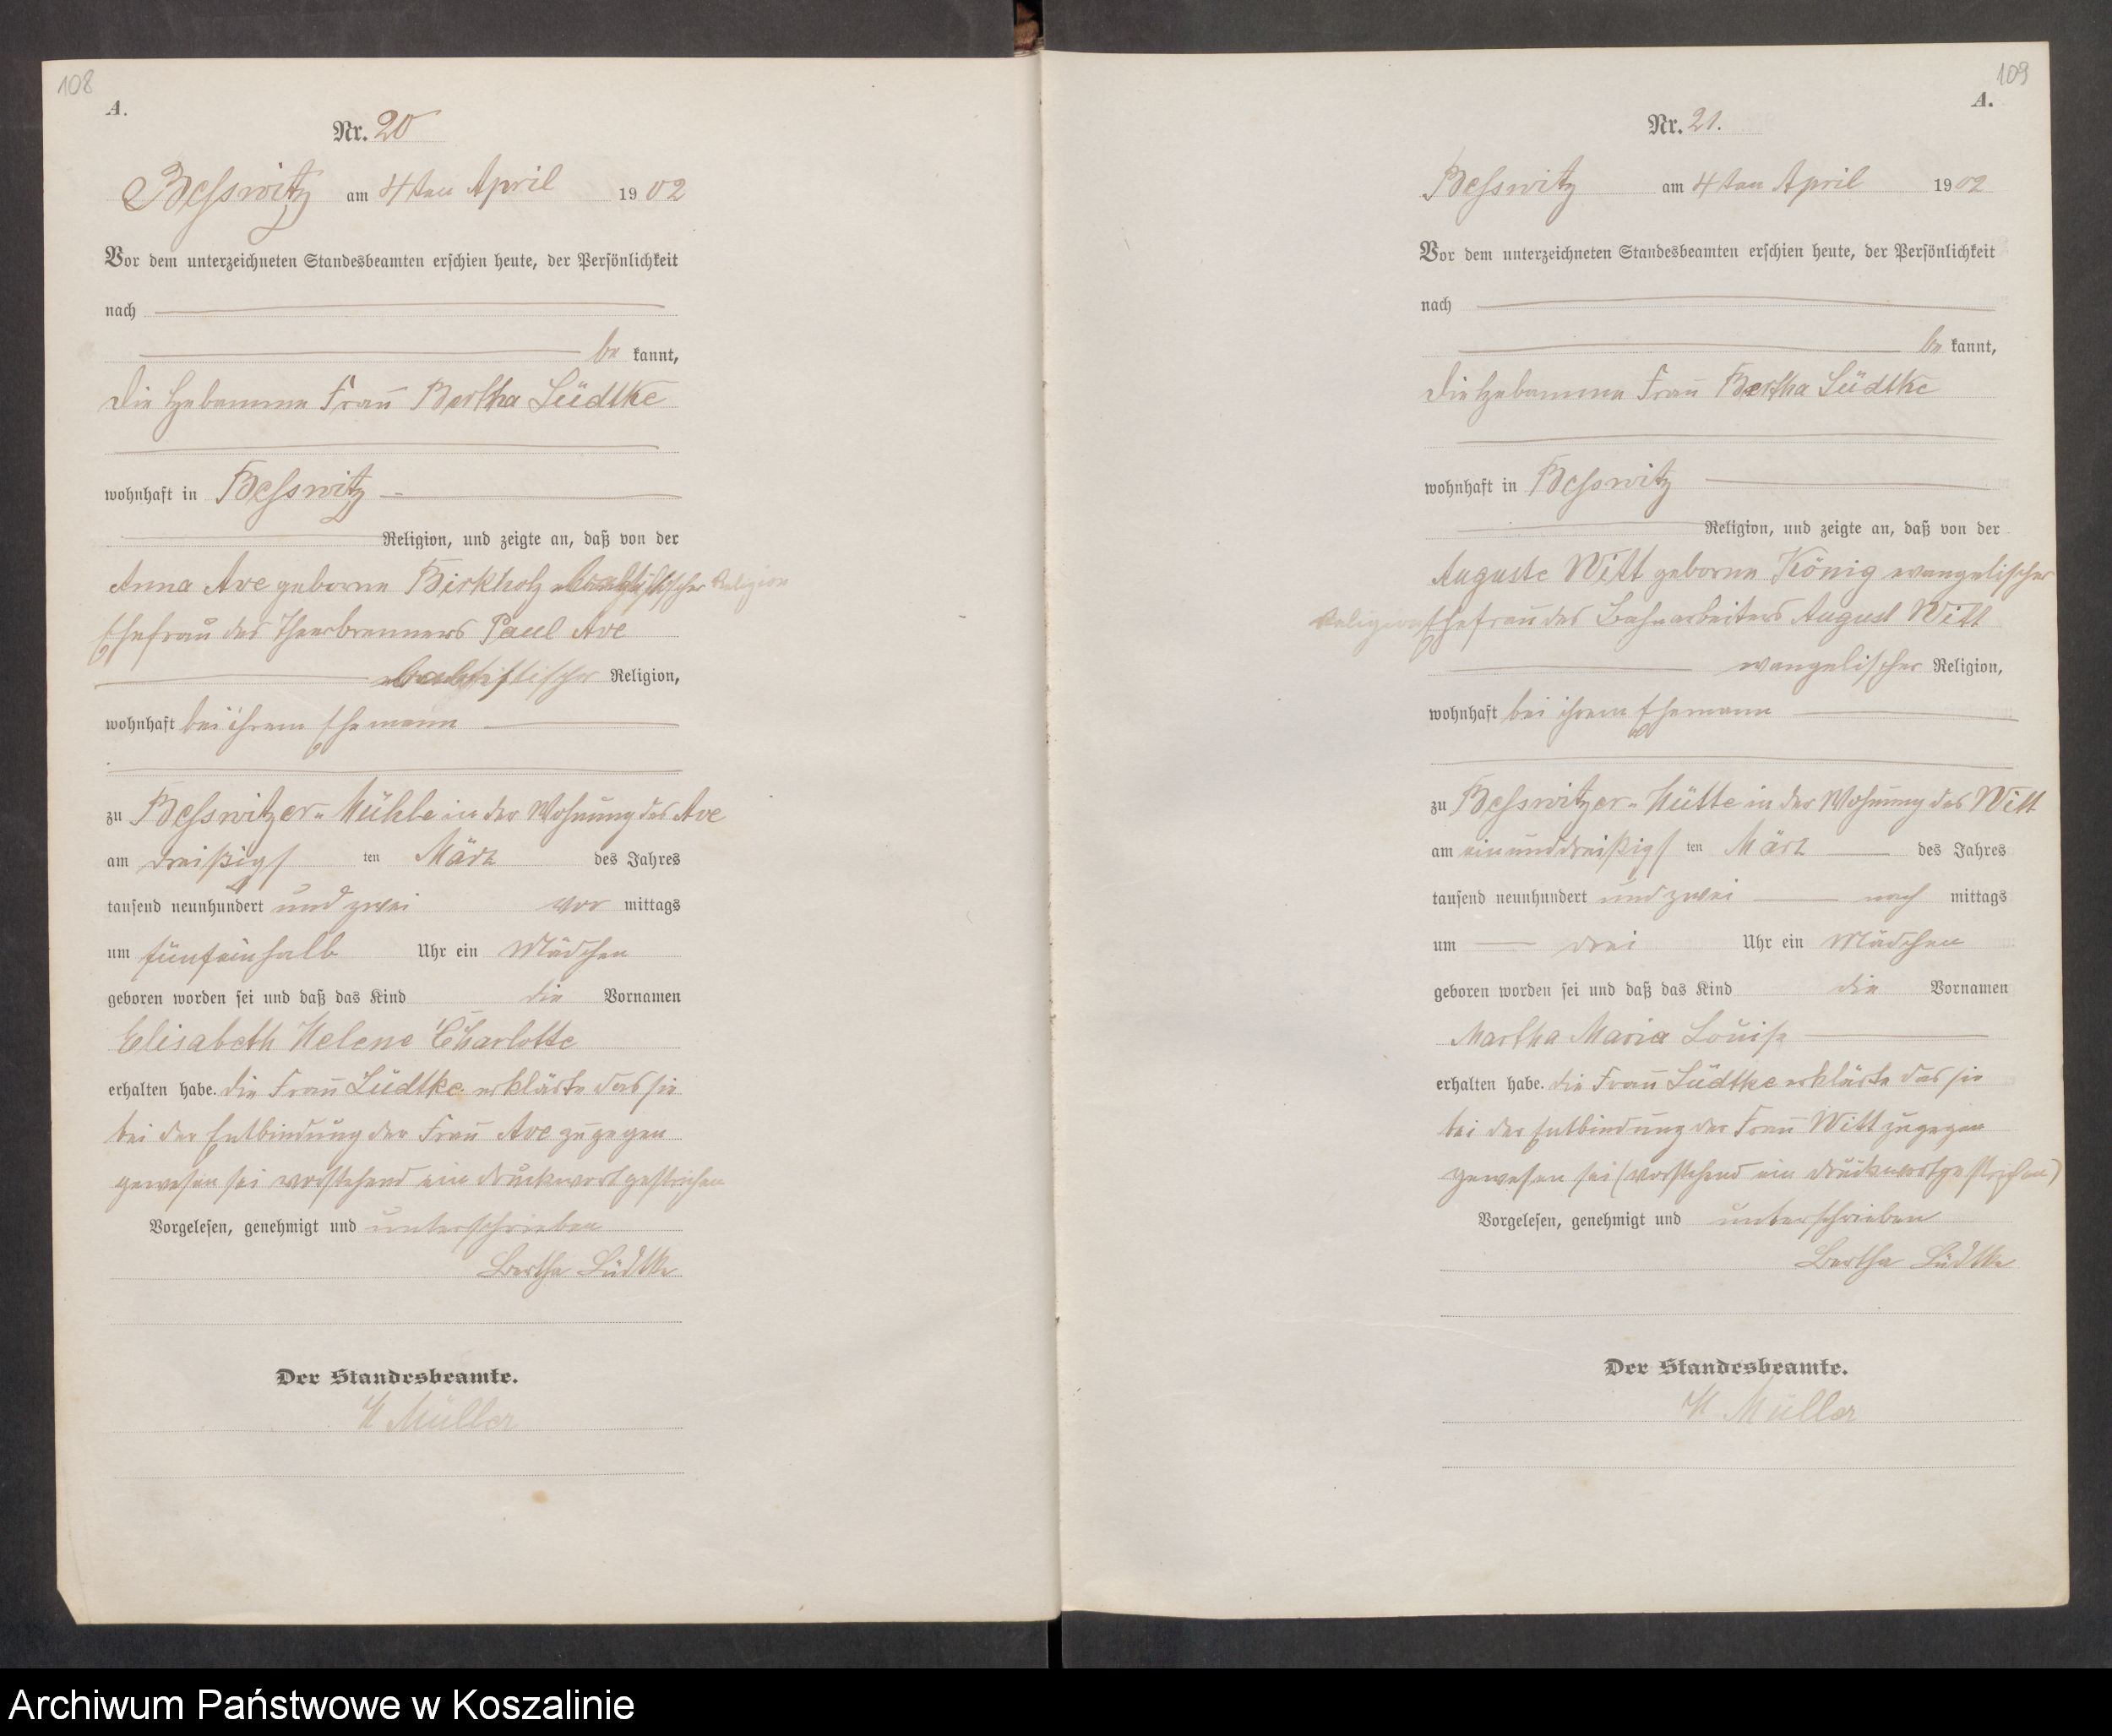 108
A.
Nr. 20
Besswitz am 4ten April 1902
Vor dem unterzeichneten Standesbeamten erschien heute, der Persönlichkeit
nach
be kannt,
die Hebamme Frau Bertha Lüdtke
wohnhaft in Besswitz
Religion, und zeigte an, daß von der
Anna Ave geborne Birkholz Religion
Ehefrau des Theerbrenners Paul Ave
Religion,
wohnhaft bei ihrem Ehemann
zu Besswitzer-Mühle in der Wohnung des Ave
am dreißigsten März des Jahres
tausend neunhundert und zwei vor mittags
um fünfeinhalb Uhr ein Mädchen
geboren worden sei und daß das Kind die Vornamen
Elisabeth Helene Charlotte
erhalten habe. die Frau Lüdtke erklärte das sie
bei der Entbindung der Frau Ave zugegen
gewesen sei vorstehend ein Druckwort gestrichen
Vorgelesen, genehmigt und unterschrieben
Bertha Lüdtke
Der Standesbeamte.
Müller
109
A.
Nr. 21.
Besswitz am 4ten April 1902
Vor dem unterzeichneten Standesbeamten erschien heute, der Persönlichkeit
nach
be kannt,
die Hebamme Frau Bertha Lüdtke
wohnhaft in Besswitz
Religion, und zeigte an, daß von der
Auguste Witt geborne König evangelischer
Religion Ehefrau des Bahnarbeiters August Witt
evangelischer Religion,
wohnhaft bei ihrem Ehemann
zu Besswitzer-Hütte in der Wohnung des Witt
am einunddreißigsten März des Jahres
tausend neunhundert und zwei nach mittags
um drei Uhr ein Mädchen
geboren worden sei und daß das Kind die Vornamen
Martha Maria Louise
erhalten habe. die Frau Lüdtke erklärte das sie
bei der Entbindung der Frau Witt zugegen
gewesen sei (vorstehend ein Druckwort gestrichen)
Vorgelesen, genehmigt und unterschrieben
Bertha Lüdtke
Der Standesbeamte.
Müller
Archiwum Państwowe w Koszalinie